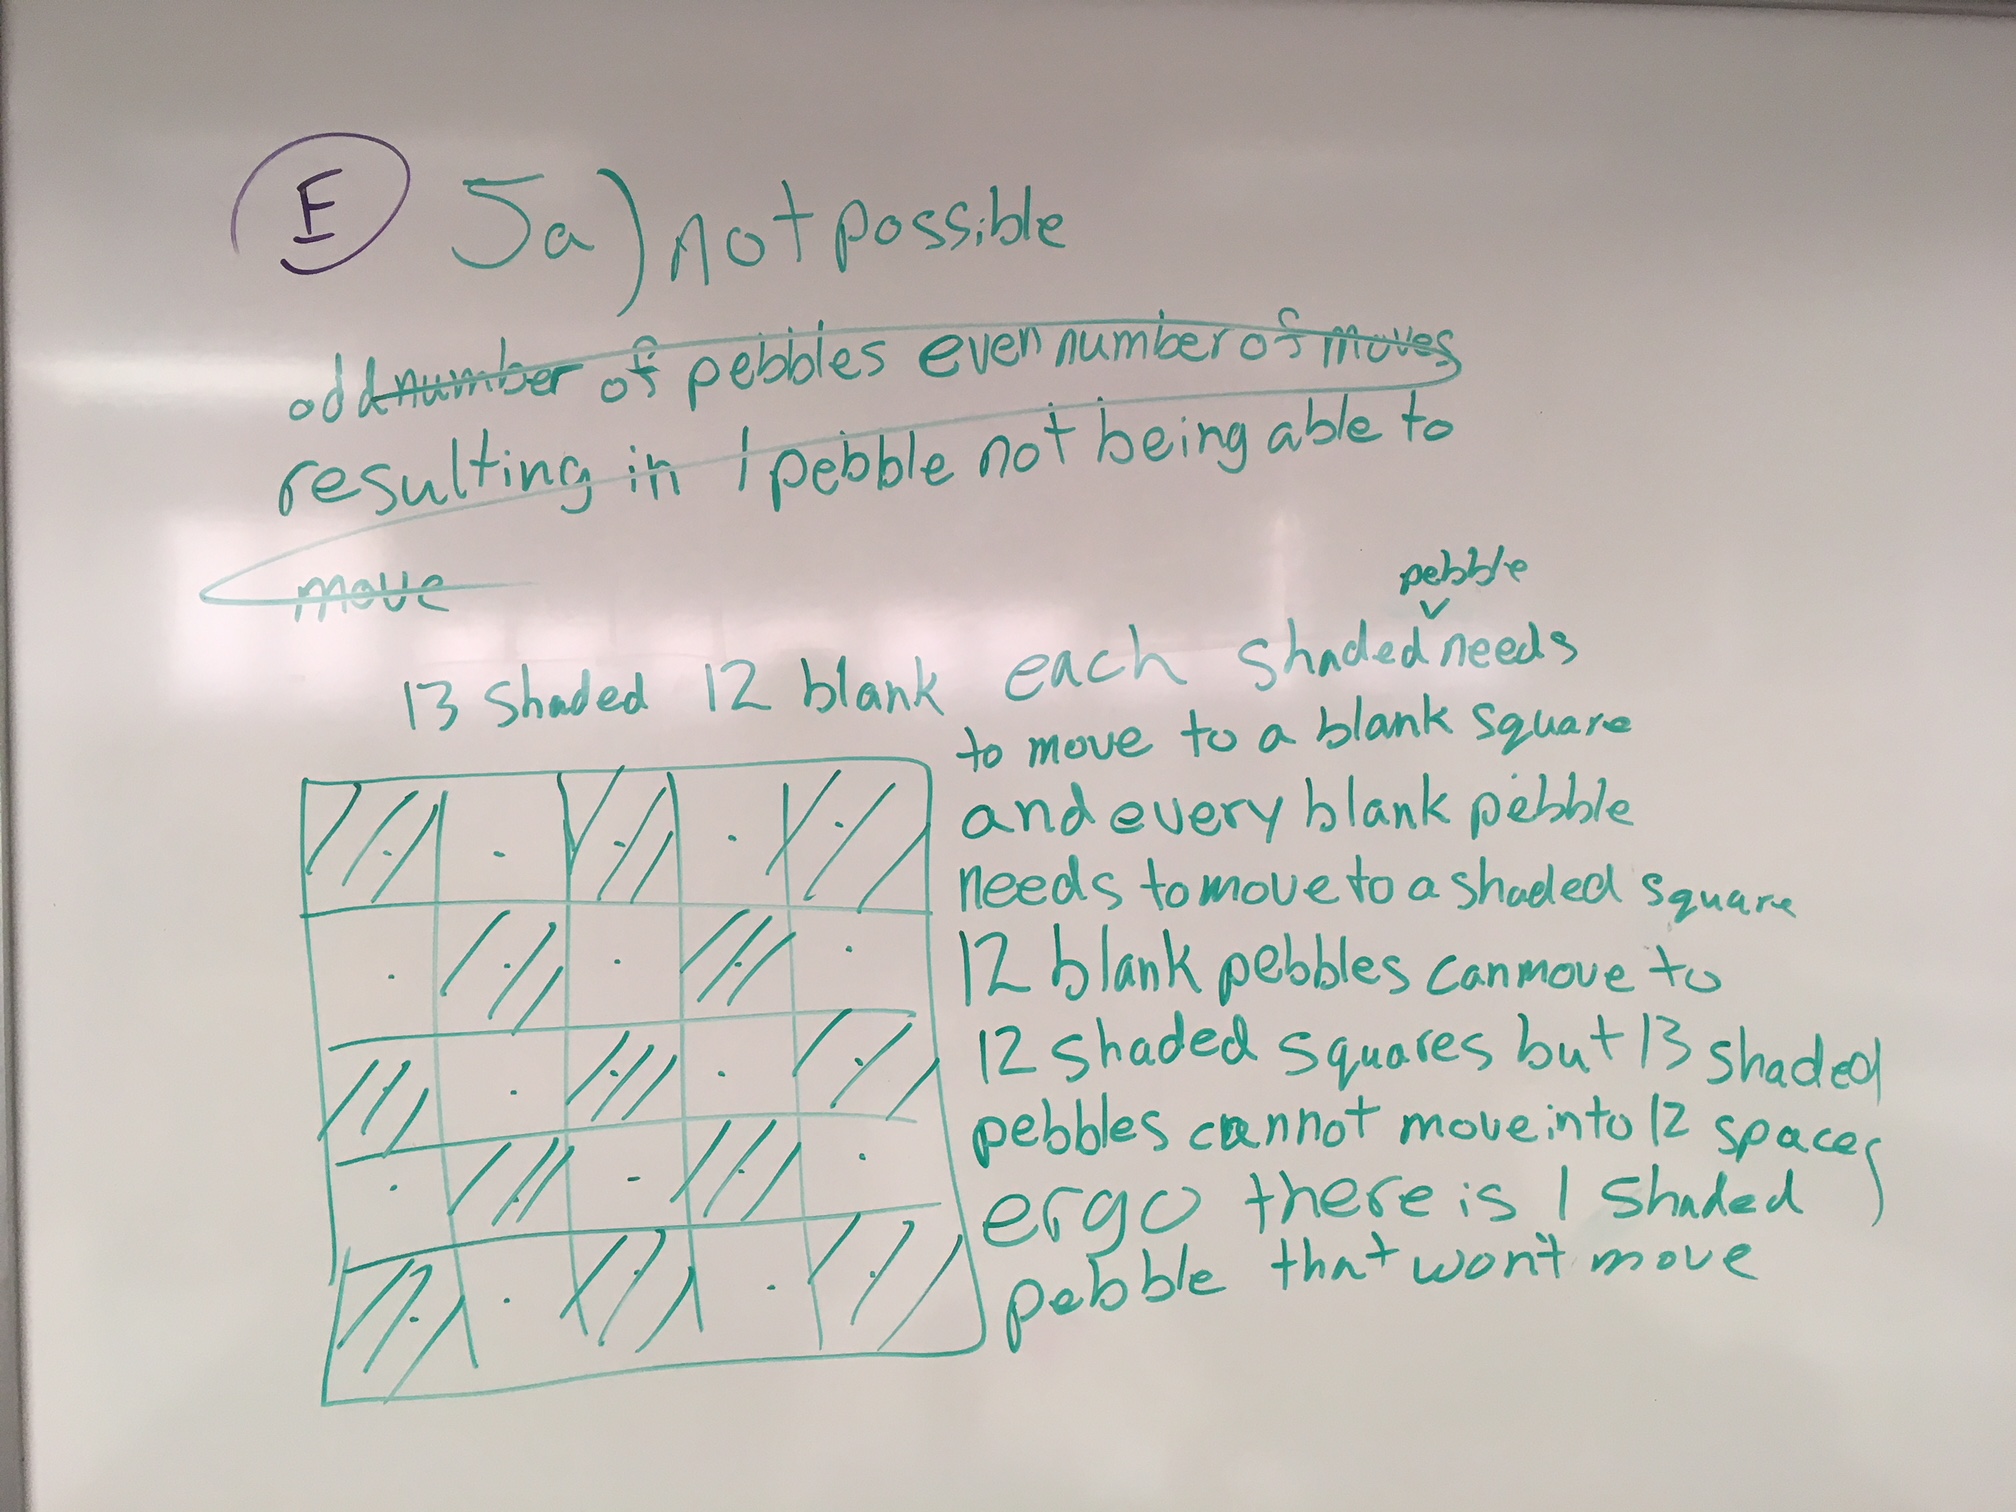 F 5a) not possible
odd number of pebbles even number of moves
resulting in 1 pebble not being able to
move
13 shaded 12 blank
each shaded pebble needs
to move to a blank square
and every blank pebble
needs to move to a shaded square
12 blank pebbles can move to
12 shaded squares but 13 shaded
pebbles cannot move into 12 spaces
ergo there is 1 shaded
pebble that won't move